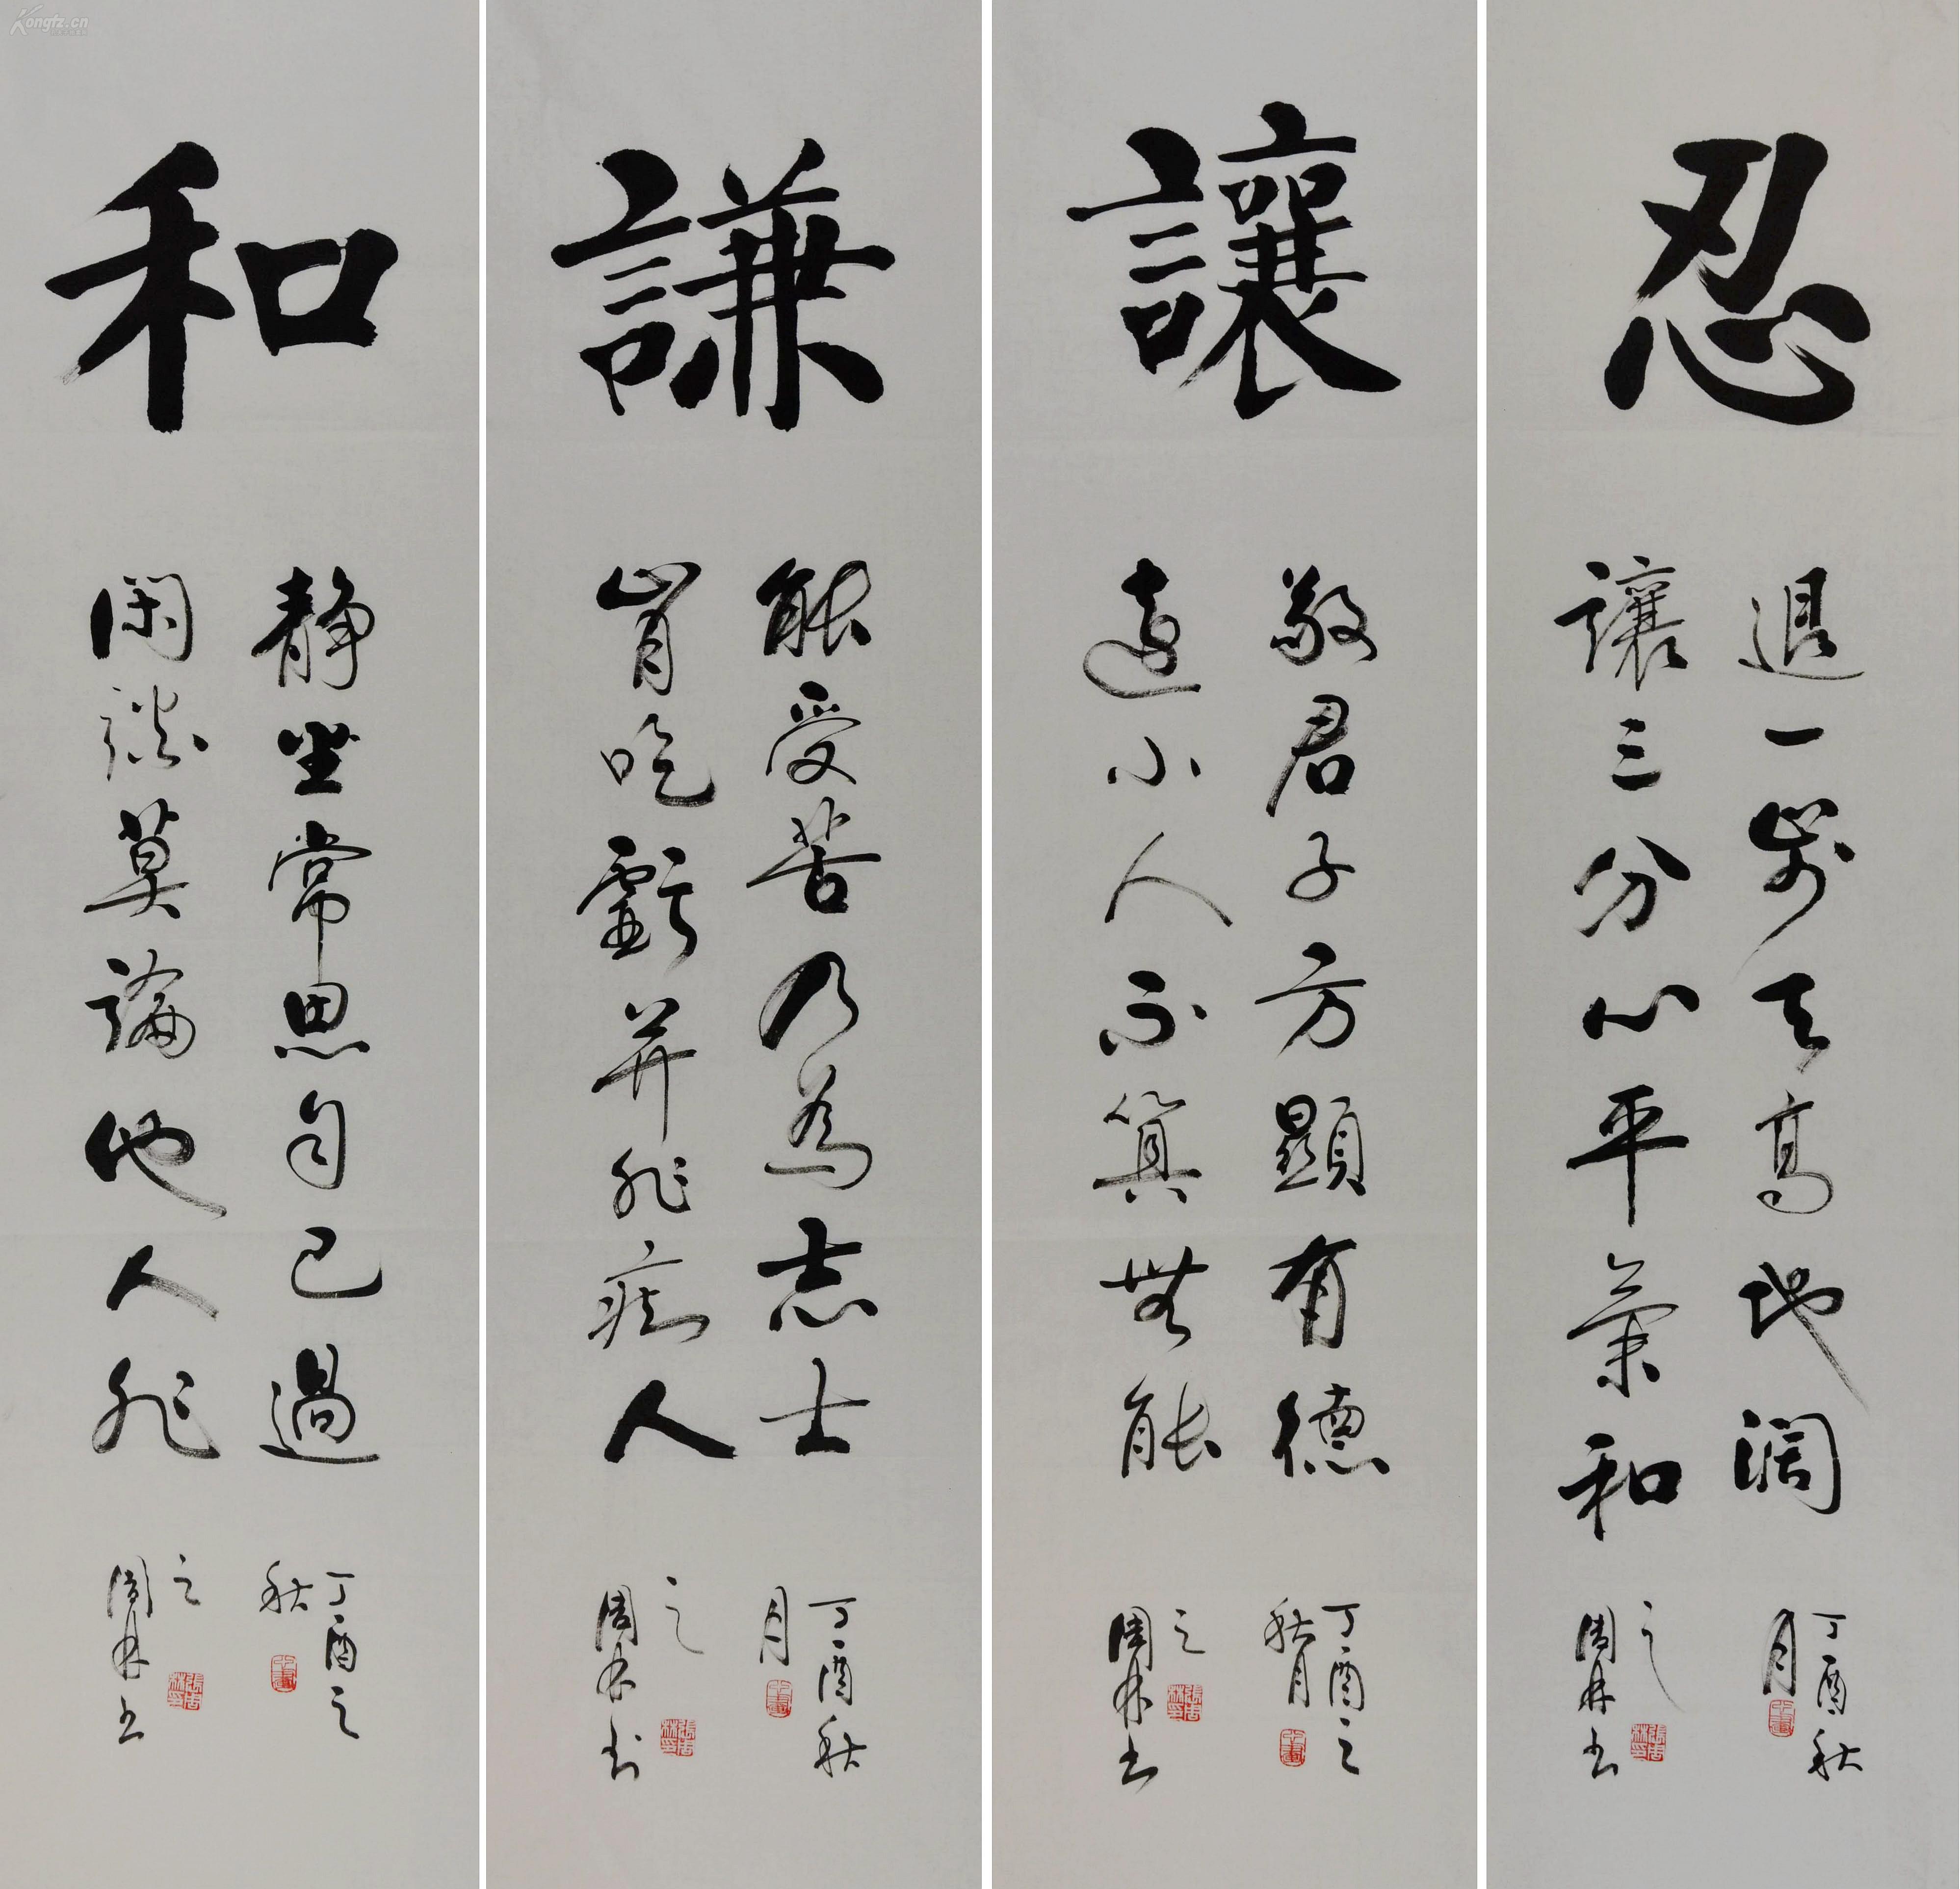 忍
退一步天高地闊
讓三分心平氣和
丁酉秋
月
之
周林书
讓
敬君子方顯有德
遠小人不算無能
丁酉之
秋月
之
周林书
謙
能受苦乃為志士
肯吃虧并非痴人
丁酉秋
月
之
周林书
和
靜坐常思自己過
闲談莫論他人非
丁酉之
秋
之
周林书
Kongfz.cn